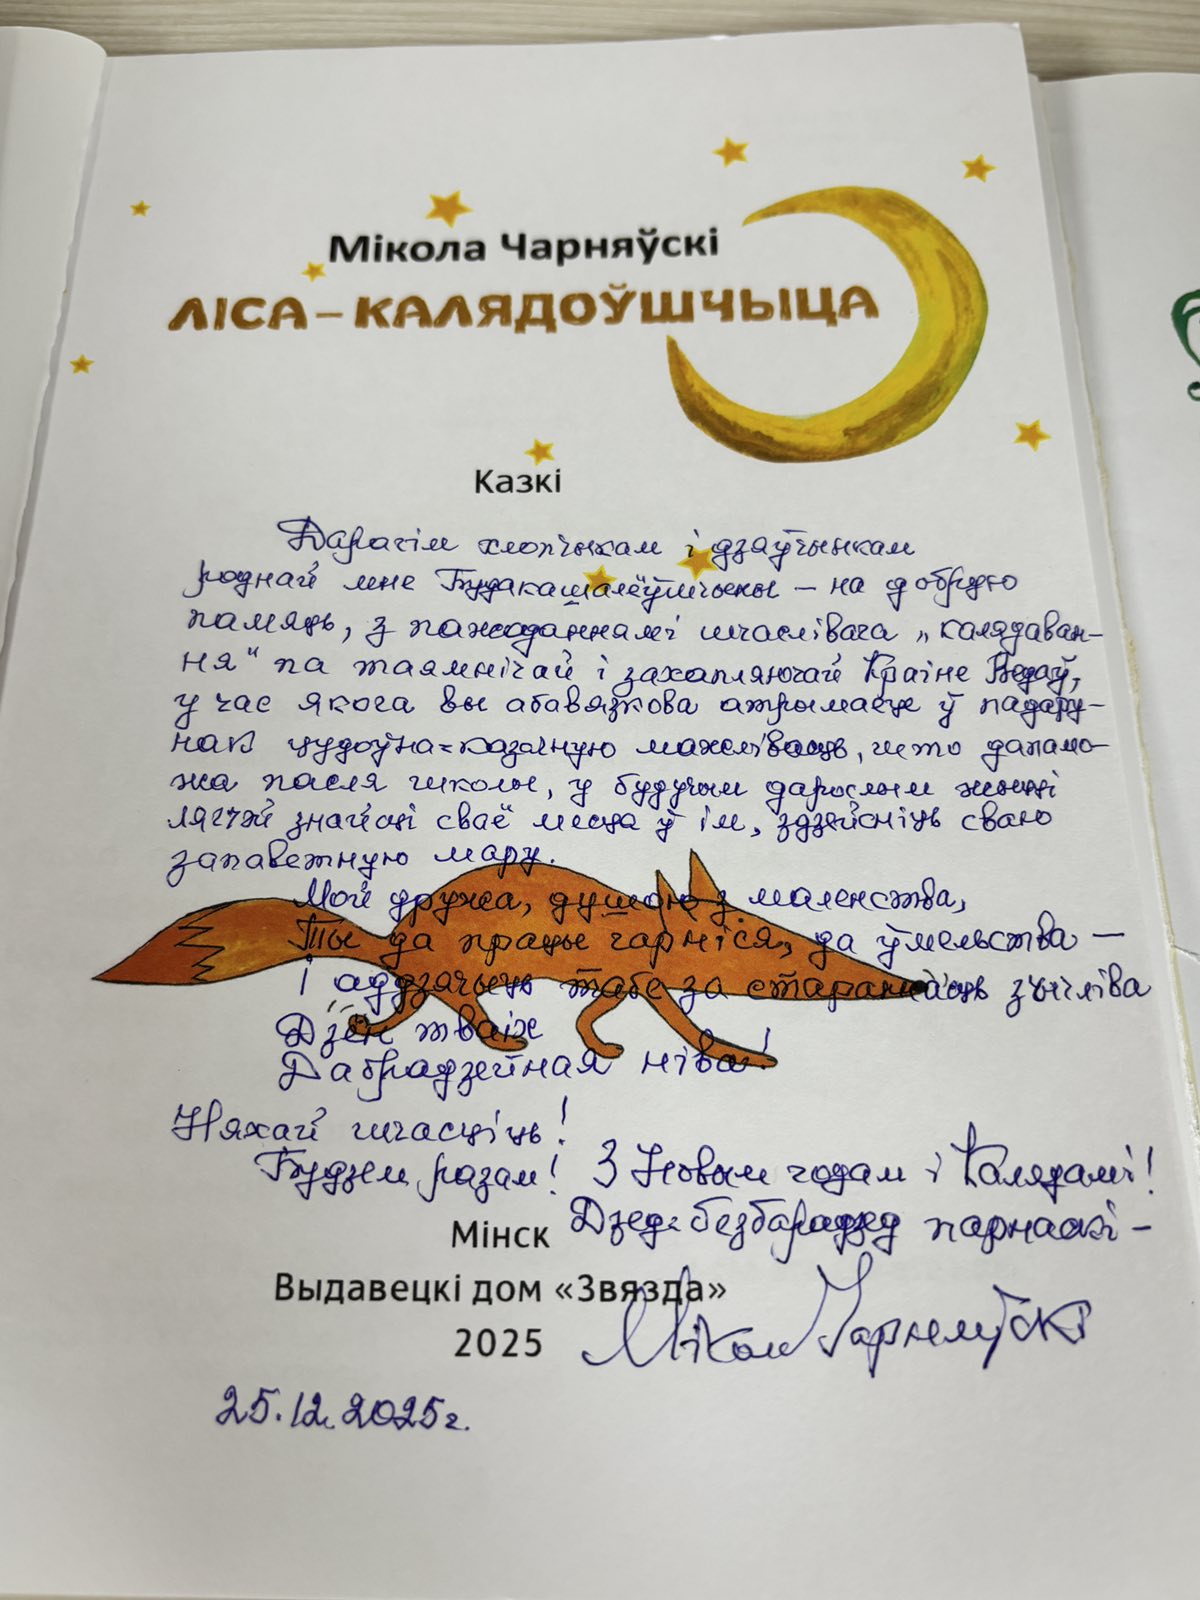 Мікола Чарняўскі
ЛІСА – КАЛЯДОЎШЧЫЦА
Казкі
Дарагім хлопчыкам і дзяўчынкам
роднай мне Будакашалёўшчыны – на добрую
памяць, з пажаданнямі шчаслівага „калядаван-
ня“ па таямнічай і захапляючай Краіне Ведаў,
у час якога вы абавязкова атрымаеце ў падару-
нак цудоўна-казачную магчымасць, што дапамо-
жа пасля школы, у будучым дарослым жыцці
лягчэй знайсці сваё месца ў ім, здзейсніць сваю
запаветную мару.
Мой дружа, душою з маленства,
Ты да працы гарніся, да ўмельства –
І аддзячыць табе за стараннасць зычліва
Дзён тваіх
Дабрадзейная ніва!
Няхай шчасціць!
Будзем разам! З Новым годам і Калядамі!
Мінск
Дзед-безбарадзед парнаскі –
Выдавецкі дом «Звязда»
2025
Мікола Чарняўскі
25.12.2025г.